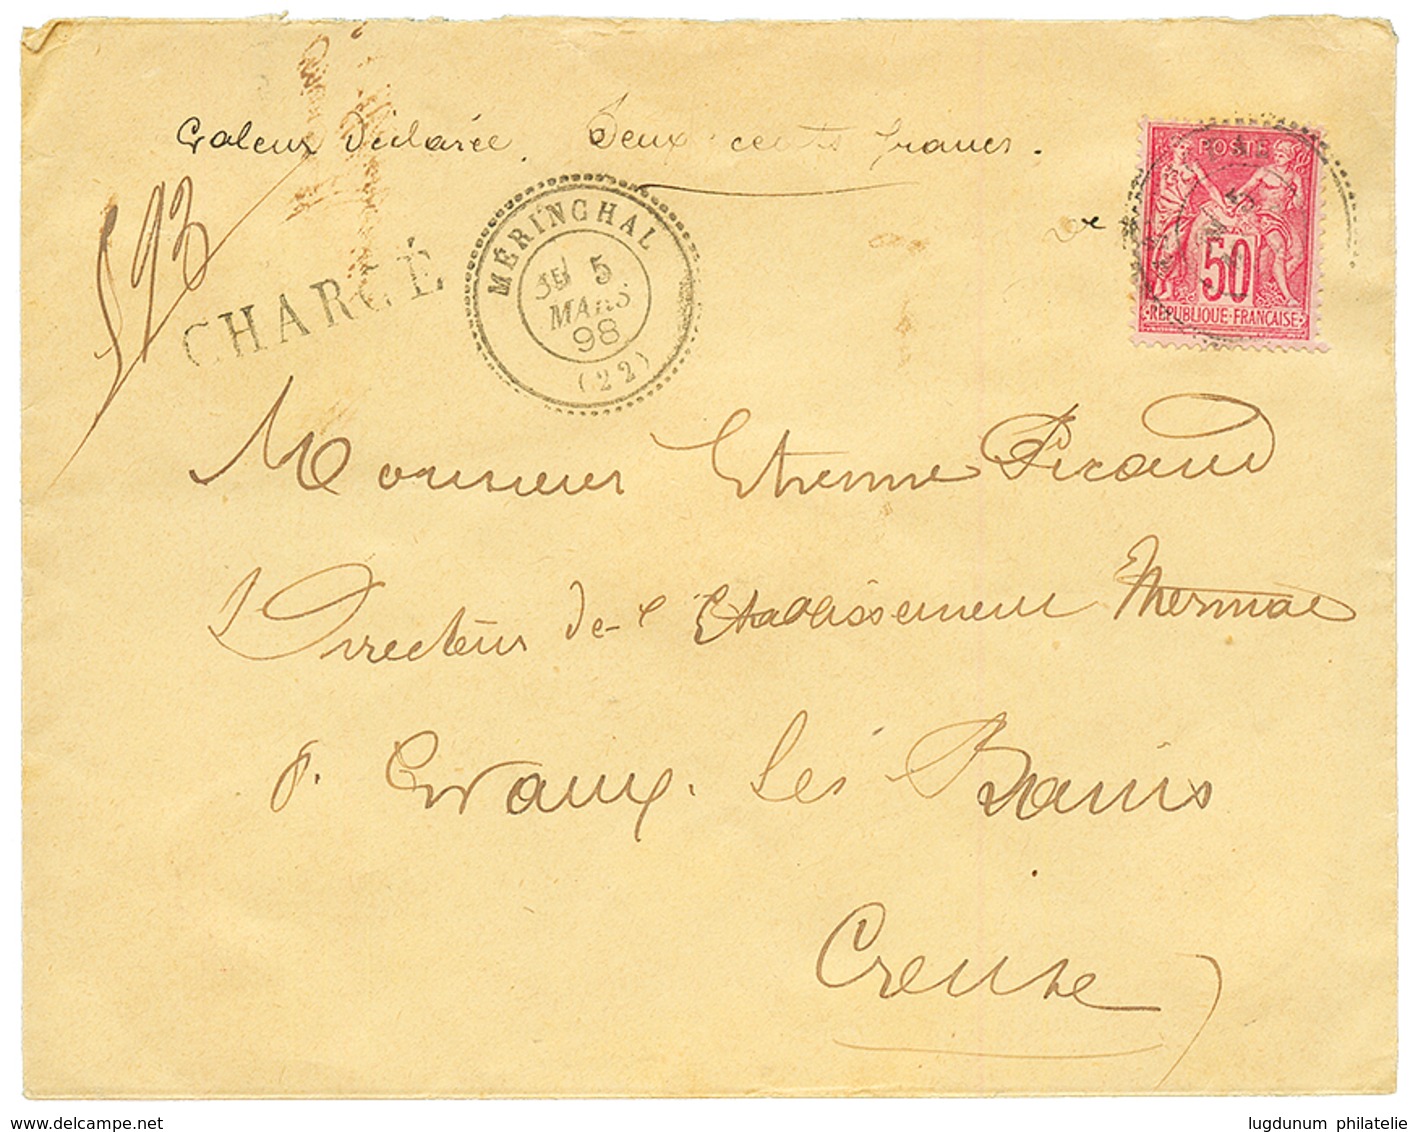 Valeur Déclarée. Deux cents francs.
593
CHARGÉ
MÉRINCHAL
5
MARS
98
(22)
POSTE
50
REPUBLIQUE FRANCAISE
Monsieur Etienne Picaud
Directeur de l'Etablissement Thermal
à Evaux les Bains
Creuse
www.delcampe.net
lugdunum philatelie